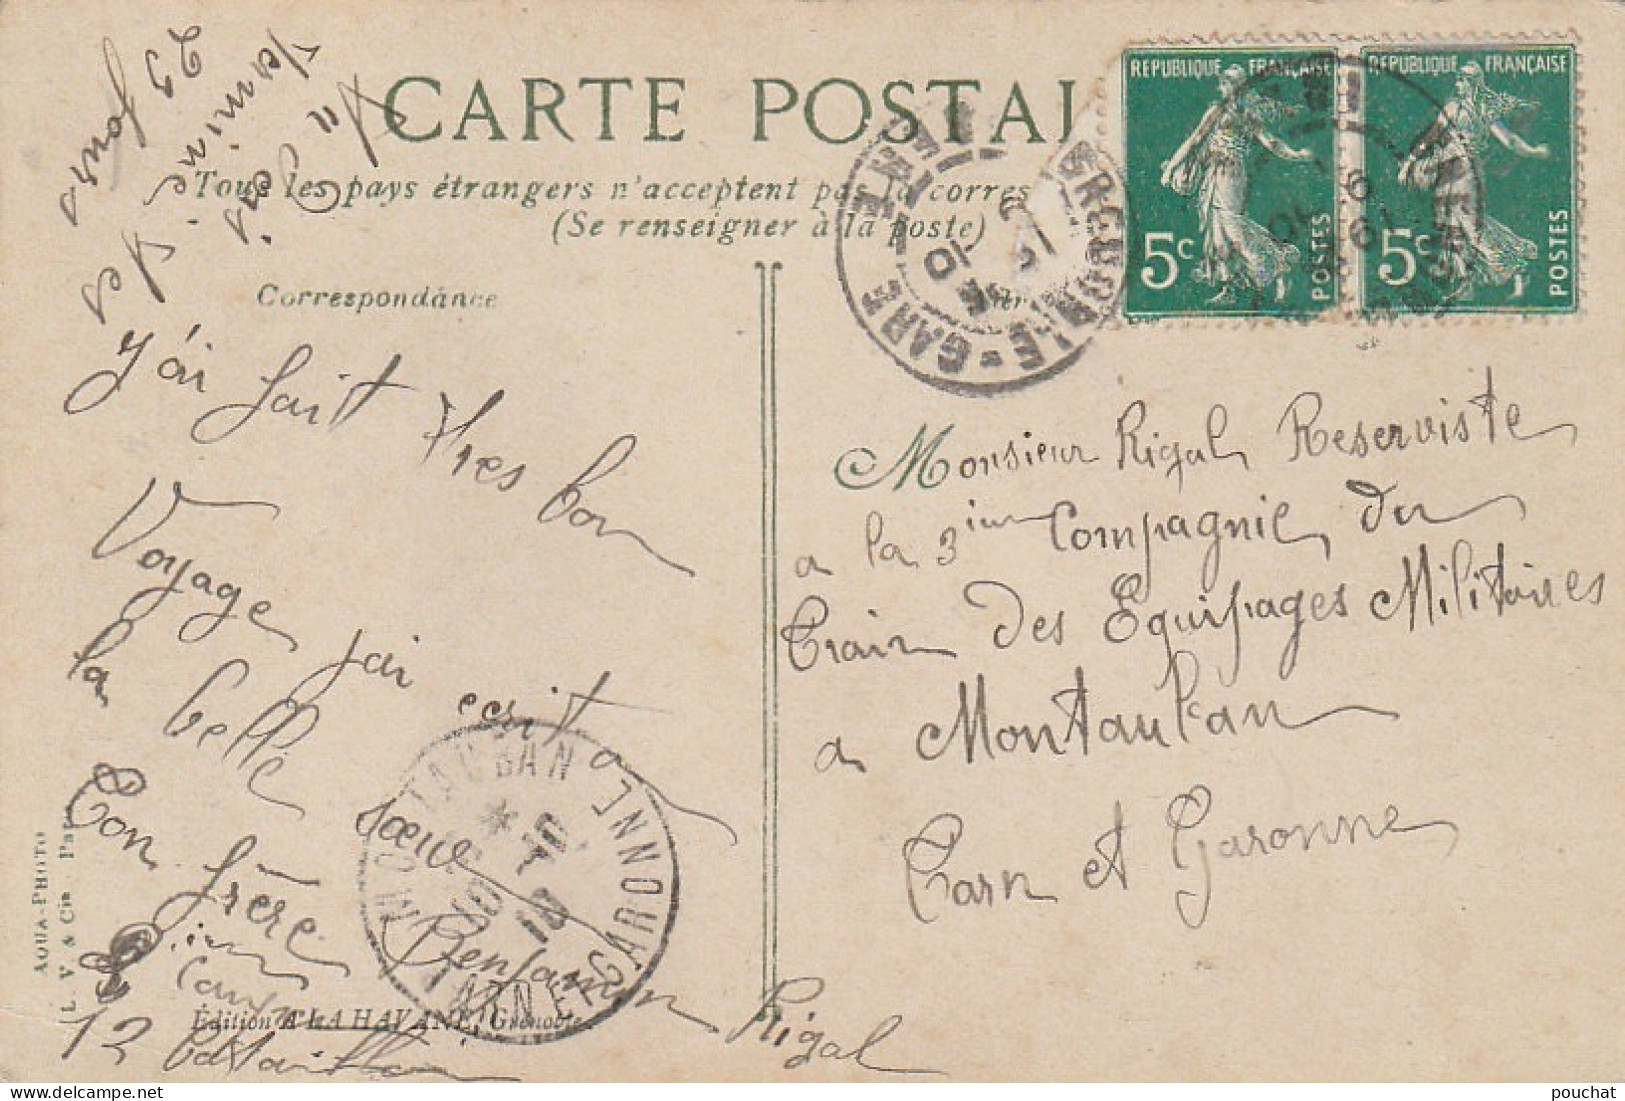 CARTE POSTAL
Tous les pays étrangers n'acceptent pas la corres
(Se renseigner à la poste)
Correspondance
REPUBLIQUE FRANÇAISE
5c POSTES
REPUBLIQUE FRANÇAISE
5c POSTES
GARE
MONTAUBAN
TARN-ET-GARONNE
23 Jours
J'ai fait tres bon
Voyage jai ecrit a
la belle sœur
Ton frère
Benjamin Rigal
12 bataillon
Monsieur Rigal Reserviste
a la 3ieme Compagnie du
Train des Equipages Militaires
a Montauban
Tarn et Garonne
AQUA-PHOTO
L. V. & Cie Paris
Édition A LA HAVANE, Grenoble
pouchat